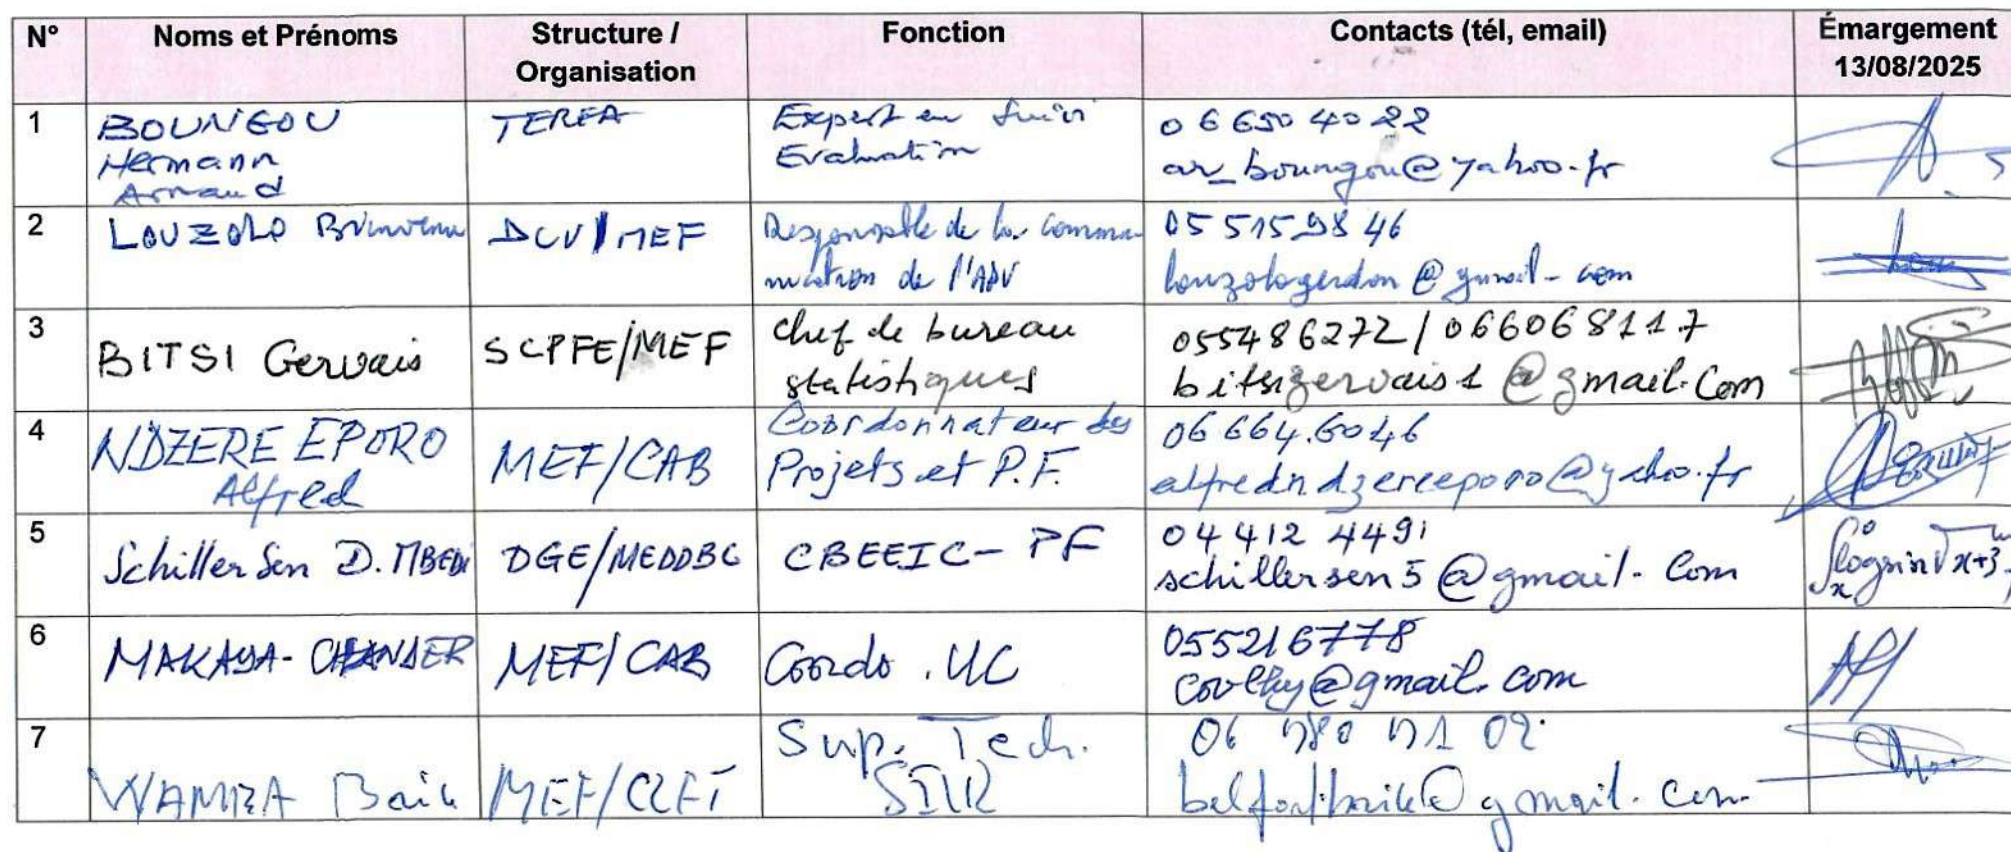 N° Noms et Prénoms Structure / Organisation Fonction Contacts (tél, email) Émargement 13/08/2025
1 BOUNGOU Hermann Arnaud TEREA Expert en Suivi Evaluation 06 650 40 22 ar_boungou@yahoo.fr
2 LOUZOLO Bienvenu DCV/MEF Responsable de la communication de l'APV 05 515 98 46 louzologerdon@gmail.com
3 BITSI Gervais SCPFE/MEF Chef de bureau statistiques 055486272/066068117 bitsigervais1@gmail.Com
4 NDZERE EPORO Alfred MEF/CAB Coordonnateur des Projets et P.F. 06 664.60 46 alfredndzereeporo@yahoo.fr
5 Schiller Sen D. MBEDI DGE/MEDDBC CBEEIC- PF 04 412 4491 schillersen5@gmail.Com
6 MAKAYA- MEF/CAB Coordo .UC 055216778 @gmail.com
7 MEF/ Sup. Tech. 06 02